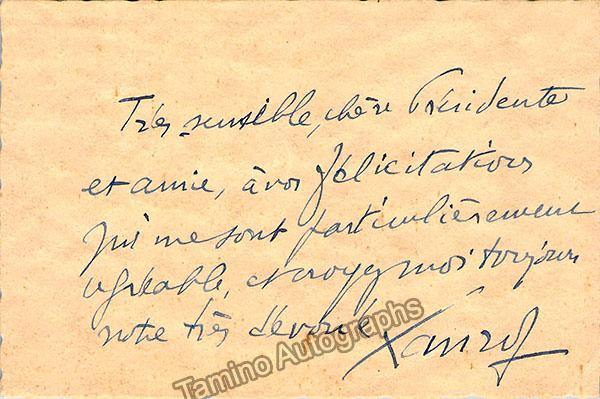 Très sensible, chère Présidente
et amie, à vos félicitations
qui me sont particulièrement
agréable, et croyez moi toujours
votre très dévoué
Xanrof
Tamino Autographs